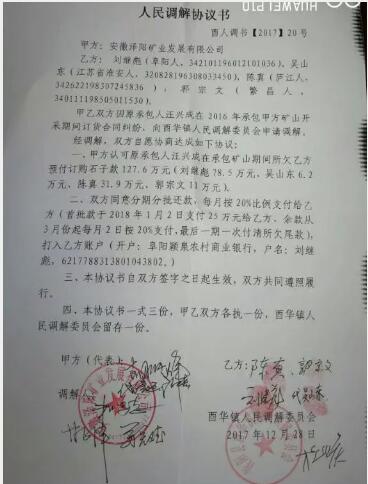 HUAWEI P10
人民调解协议书
西人调书【2017】20号
甲方：安徽泽阳矿业发展有限公司
乙方：刘继彪（阜阳人，342101196012101036）、吴山
东（江苏省淮安人，320828196308033450）、陈真（庐江人，
342622198307245836），郭宗文（繁昌人，
340111198505011530）。
甲乙双方因原承包人汪兴成在2016年承包甲方矿山开
采期间订货合同纠纷，向西华镇人民调解委员会申请调解。
经调解，双方自愿协商达成如下协议：
一、甲方认可原承包人汪兴成在承包矿山期间所欠乙方
预付订购石子款127.6万元（刘继彪78.5万元、吴山东6.2
万元、陈真31.9万元、郭宗文11万元）。
二、双方同意分期分批还款，每月按20%比例支付给乙
方（首批款于2018年1月2日支付25万元给乙方、余款从
3月份起每月2日按20%支付，最后一期一次付清所欠尾款），
打入乙方账户（开户：阜阳颍泉农村商业银行，户名：刘继
彪，6217788313801043802。）
三、本协议书自双方签字之日起生效，双方共同遵照履
行。
四、本协议书一式三份，甲乙双方各执一份，西华镇人
民调解委员会留存一份。
甲方（代表）
乙方：陈真 郭宗文
调解
西华镇人民调解委员会
2017年12月28日